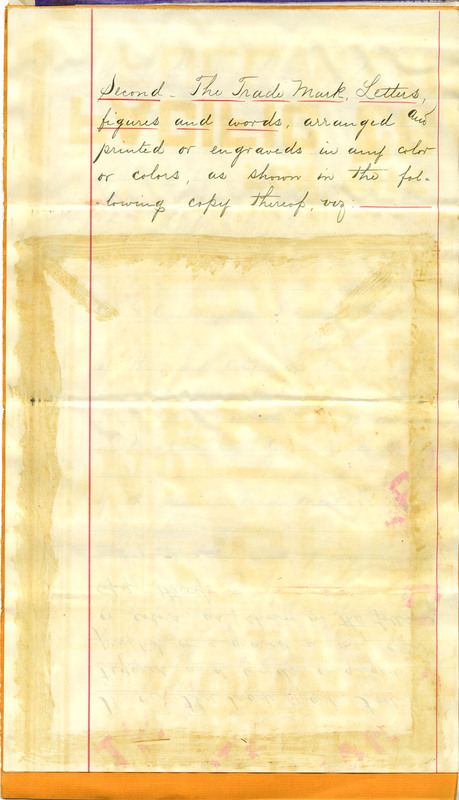 Second - The Trade Mark, Letters,
figures and words, arranged and
printed or engraveds in any color
or colors, as shown in the fol-
lowing copy thereof, viz.